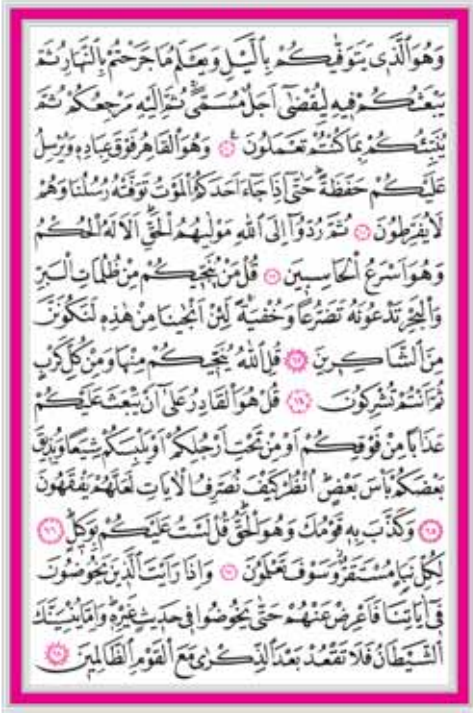 وَهُوَ الَّذٖى يَتَوَفّٰيكُمْ بِالَّيْلِ وَيَعْلَمُ مَا جَرَحْتُمْ بِالنَّهَارِ ثُمَّ
يَبْعَثُكُمْ فٖيهِ لِيُقْضٰٓى اَجَلٌ مُسَمًّى ثُمَّ اِلَيْهِ مَرْجِعُكُمْ ثُمَّ
يُنَبِّئُكُمْ بِمَا كُنْتُمْ تَعْمَلُونَ ﴿٦٠﴾ وَهُوَ الْقَاهِرُ فَوْقَ عِبَادِهٖ وَيُرْسِلُ
عَلَيْكُمْ حَفَظَةً حَتّٰٓى اِذَا جَٓاءَ اَحَدَكُمُ الْمَوْتُ تَوَفَّتْهُ رُسُلُنَا وَهُمْ
لَا يُفَرِّطُونَ ﴿٦١﴾ ثُمَّ رُدُّٓوا اِلَى اللّٰهِ مَوْلٰيهُمُ الْحَقِّ اَلَا لَهُ الْحُكْمُ
وَهُوَ اَسْرَعُ الْحَاسِبٖينَ ﴿٦٢﴾ قُلْ مَنْ يُنَجّٖيكُمْ مِنْ ظُلُمَاتِ الْبَرِّ
وَالْبَحْرِ تَدْعُونَهُ تَضَرُّعًا وَخُفْيَةً لَئِنْ اَنْجٰينَا مِنْ هٰذِهٖ لَنَكُونَنَّ
مِنَ الشَّاكِرٖينَ ﴿٦٣﴾ قُلِ اللّٰهُ يُنَجّٖيكُمْ مِنْهَا وَمِنْ كُلِّ كَرْبٍ
ثُمَّ اَنْتُمْ تُشْرِكُونَ ﴿٦٤﴾ قُلْ هُوَ الْقَادِرُ عَلٰٓى اَنْ يَبْعَثَ عَلَيْكُمْ
عَذَابًا مِنْ فَوْقِكُمْ اَوْ مِنْ تَحْتِ اَرْجُلِكُمْ اَوْ يَلْبِسَكُمْ شِيَعًا وَيُذٖيقَ
بَعْضَكُمْ بَأْسَ بَعْضٍ اُنْظُرْ كَيْفَ نُصَرِّفُ الْاٰيَاتِ لَعَلَّهُمْ يَفْقَهُونَ
﴿٦٥﴾ وَكَذَّبَ بِهٖ قَوْمُكَ وَهُوَ الْحَقُّ قُلْ لَسْتُ عَلَيْكُمْ بِوَكٖيلٍ ﴿٦٦﴾
لِكُلِّ نَبَاٍ مُسْتَقَرٌّ وَسَوْفَ تَعْلَمُونَ ﴿٦٧﴾ وَاِذَا رَاَيْتَ الَّذٖينَ يَخُوضُونَ
فٖٓى اٰيَاتِنَا فَاَعْرِضْ عَنْهُمْ حَتّٰى يَخُوضُوا فٖى حَدٖيثٍ غَيْرِهٖ وَاِمَّا يُنْسِيَنَّكَ
الشَّيْطَانُ فَلَا تَقْعُدْ بَعْدَ الذِّكْرٰى مَعَ الْقَوْمِ الظَّالِمٖينَ ﴿٦٨﴾